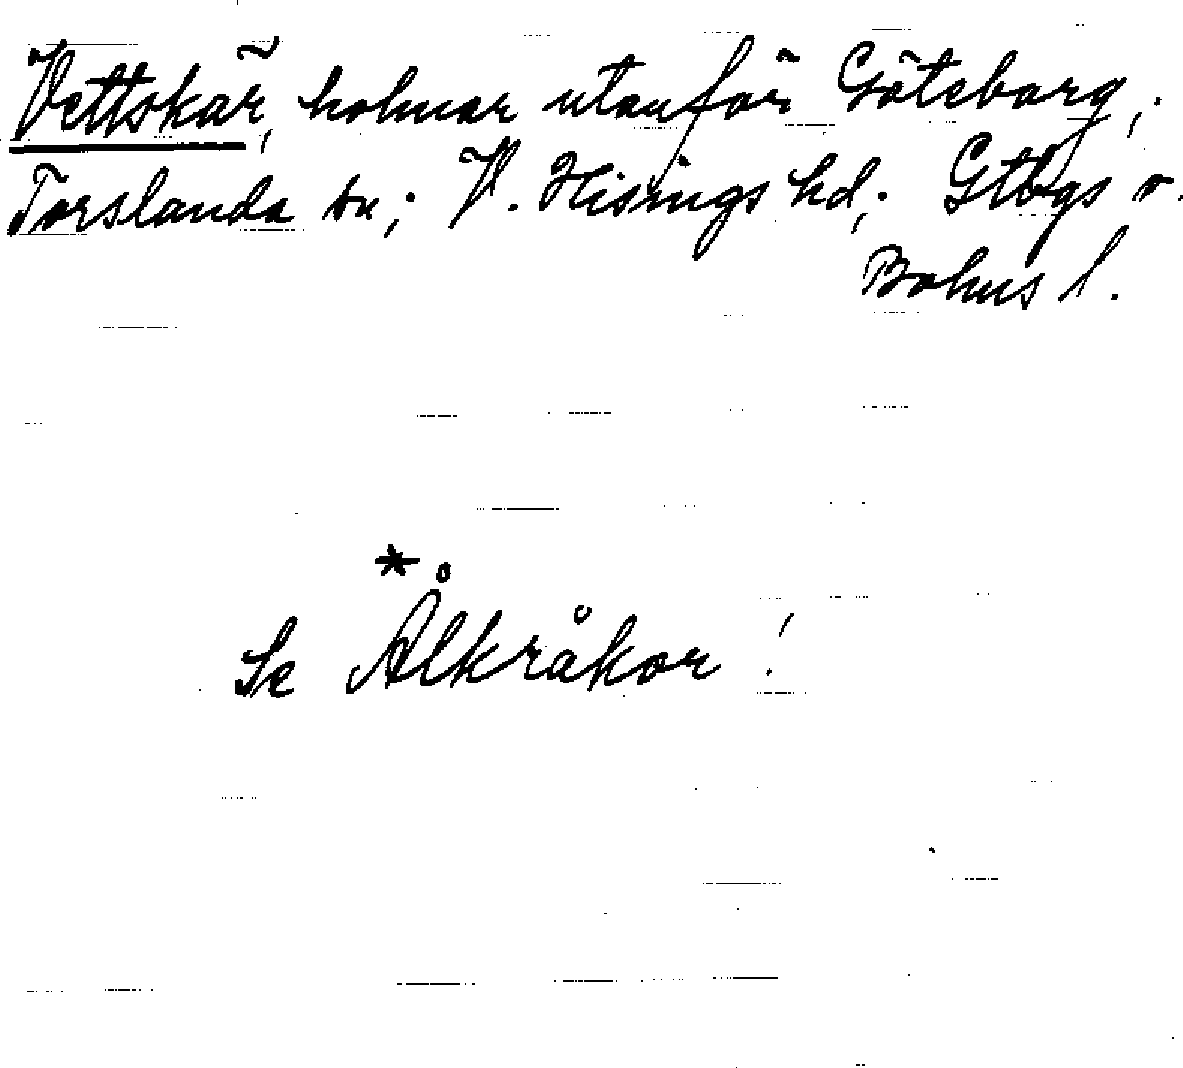 Vettskär, holmar utanför Göteborg;
Torslanda sn; V. Hisings hd; Gtbgs o.
Bohus l.
*
Se Ålkråkor!